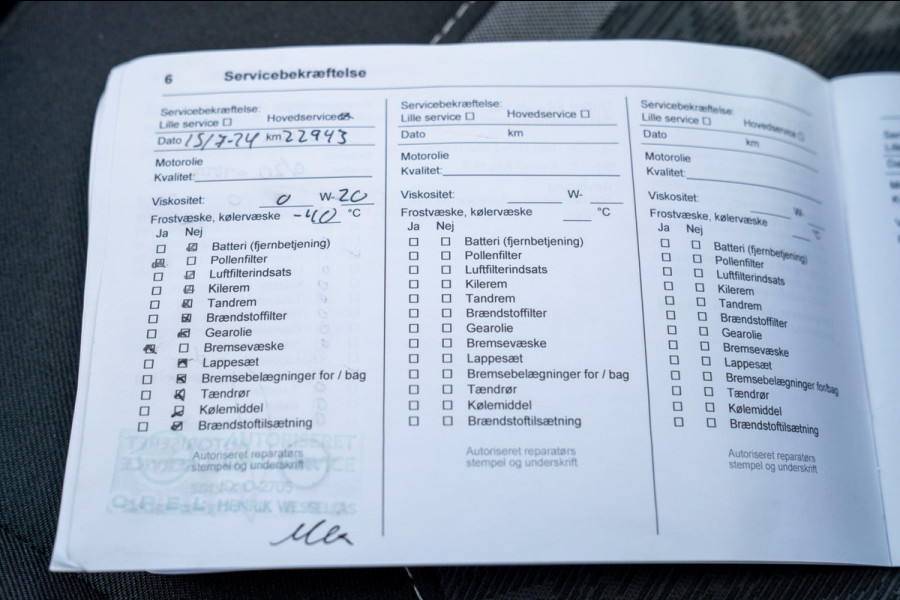 6 Servicebekræftelse
Servicebekræftelse:
Lille service ☐ Hovedservice ☒
Dato 15/7-24 km 22943
Motorolie
Kvalitet:
Viskositet: 0 W-20
Frostvæske, kølervæske -40 °C
Ja Nej
☐ ☒ Batteri (fjernbetjening)
☒ ☐ Pollenfilter
☐ ☒ Luftfilterindsats
☐ ☒ Kilerem
☐ ☒ Tandrem
☐ ☒ Brændstoffilter
☐ ☒ Gearolie
☒ ☐ Bremsevæske
☐ ☒ Lappesæt
☐ ☒ Bremsebelægninger for / bag
☐ ☒ Tændrør
☐ ☒ Kølemiddel
☐ ☒ Brændstoftilsætning
AUTORISERET
Autoriseret reparatørs
stempel og underskrift
OPEL HENRIK WESSEL
Servicebekræftelse:
Lille service ☐ Hovedservice ☐
Dato km
Motorolie
Kvalitet:
Viskositet: W-
Frostvæske, kølervæske °C
Ja Nej
☐ ☐ Batteri (fjernbetjening)
☐ ☐ Pollenfilter
☐ ☐ Luftfilterindsats
☐ ☐ Kilerem
☐ ☐ Tandrem
☐ ☐ Brændstoffilter
☐ ☐ Gearolie
☐ ☐ Bremsevæske
☐ ☐ Lappesæt
☐ ☐ Bremsebelægninger for / bag
☐ ☐ Tændrør
☐ ☐ Kølemiddel
☐ ☐ Brændstoftilsætning
Autoriseret reparatørs
stempel og underskrift
Servicebekræftelse:
Lille service ☐ Hovedservice ☐
Dato km
Motorolie
Kvalitet:
Viskositet: W-
Frostvæske, kølervæske °C
Ja Nej
☐ ☐ Batteri (fjernbetjening)
☐ ☐ Pollenfilter
☐ ☐ Luftfilterindsats
☐ ☐ Kilerem
☐ ☐ Tandrem
☐ ☐ Brændstoffilter
☐ ☐ Gearolie
☐ ☐ Bremsevæske
☐ ☐ Lappesæt
☐ ☐ Bremsebelægninger for/bag
☐ ☐ Tændrør
☐ ☐ Kølemiddel
☐ ☐ Brændstoftilsætning
Autoriseret reparatørs
stempel og underskrift